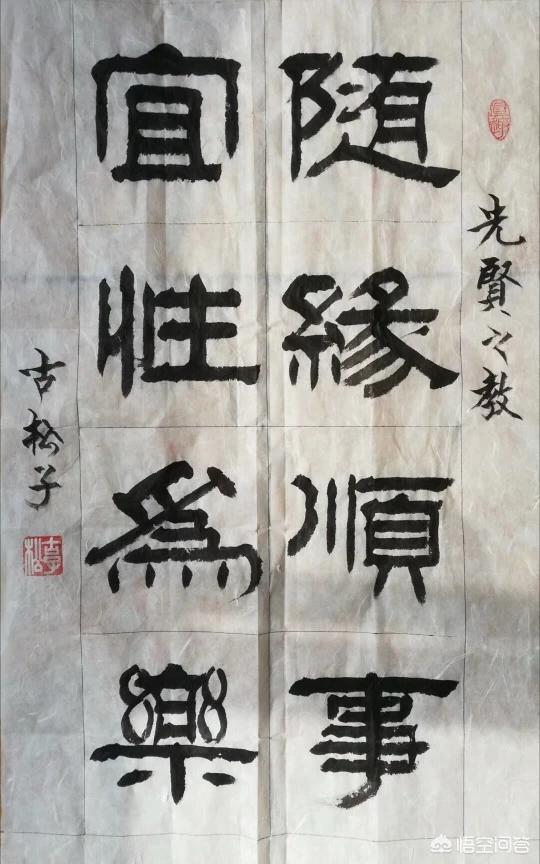 先賢之教
隨緣順事
宜性為樂
古松子
悟空问答